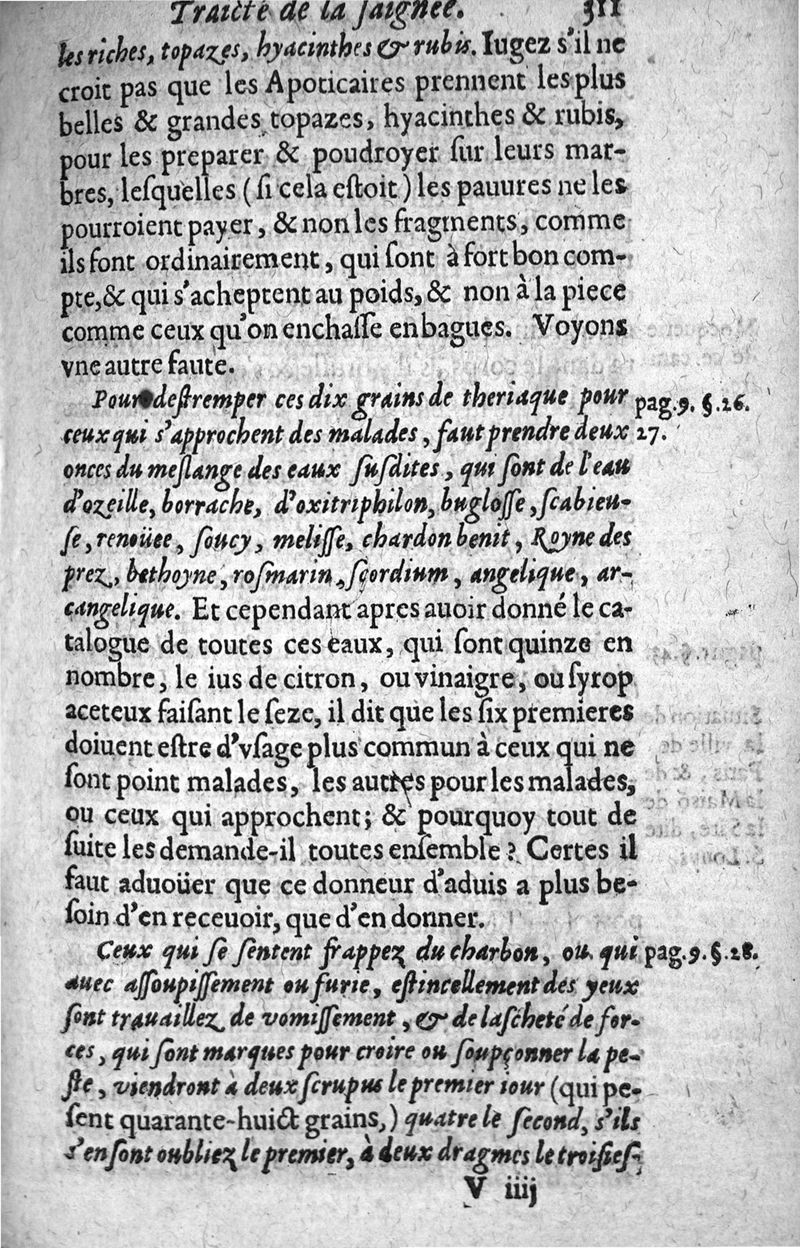 Traicté de la saignée. 311
les riches, topazes, hyacinthes & rubis. Iugez s'il ne
croit pas que les Apoticaires prennent les plus
belles & grandes topazes, hyacinthes & rubis,
pour les preparer & poudroyer ſur leurs mar-
bres, leſquelles (ſi cela eſtoit) les pauures ne les
pourroient payer, & non les fragments, comme
ils font ordinairement, qui ſont à fort bon com-
pte, & qui s'acheptent au poids, & non à la piece
comme ceux qu'on enchaſſe en bagues. Voyons
vne autre faute.
Pour deſtremper ces dix grains de theriaque pour pag. 9. §. 26.
ceux qui s'approchent des malades, faut prendre deux 27.
onces du meſlange des eaux ſuſdites, qui ſont de l'eau
d'ozeille, borrache, d'oxitriphilon, bugloſſe, ſcabieu-
ſe, renoüee, ſoucy, meliſſe, chardon benit, Royne des
prez, bethoyne, roſmarin, ſcordium, angelique, ar-
cangelique. Et cependant apres auoir donné le ca-
talogue de toutes ces eaux, qui ſont quinze en
nombre, le ius de citron, ou vinaigre, ou ſyrop
aceteux faiſant le ſeze, il dit que les ſix premieres
doiuent eſtre d'vſage plus commun à ceux qui ne
ſont point malades, les autres pour les malades,
ou ceux qui approchent; & pourquoy tout de
ſuite les demande-il toutes enſemble? Certes il
faut aduoüer que ce donneur d'aduis a plus be-
ſoin d'en receuoir, que d'en donner.
Ceux qui ſe ſentent frappez du charbon, ou qui pag. 9. §. 28.
auec aſſoupiſſement ou furie, eſtincellement des yeux
ſont trauaillez de vomiſſement, & de laſcheté de for-
ces, qui ſont marques pour croire ou ſoupçonner la pe-
ſte, viendront à deux ſcrupus le premier iour (qui pe-
ſent quarante-huict grains,) quatre le ſecond, s'ils
s'en ſont oubliez le premier, à deux dragmes le troiſieſ-
V iiij